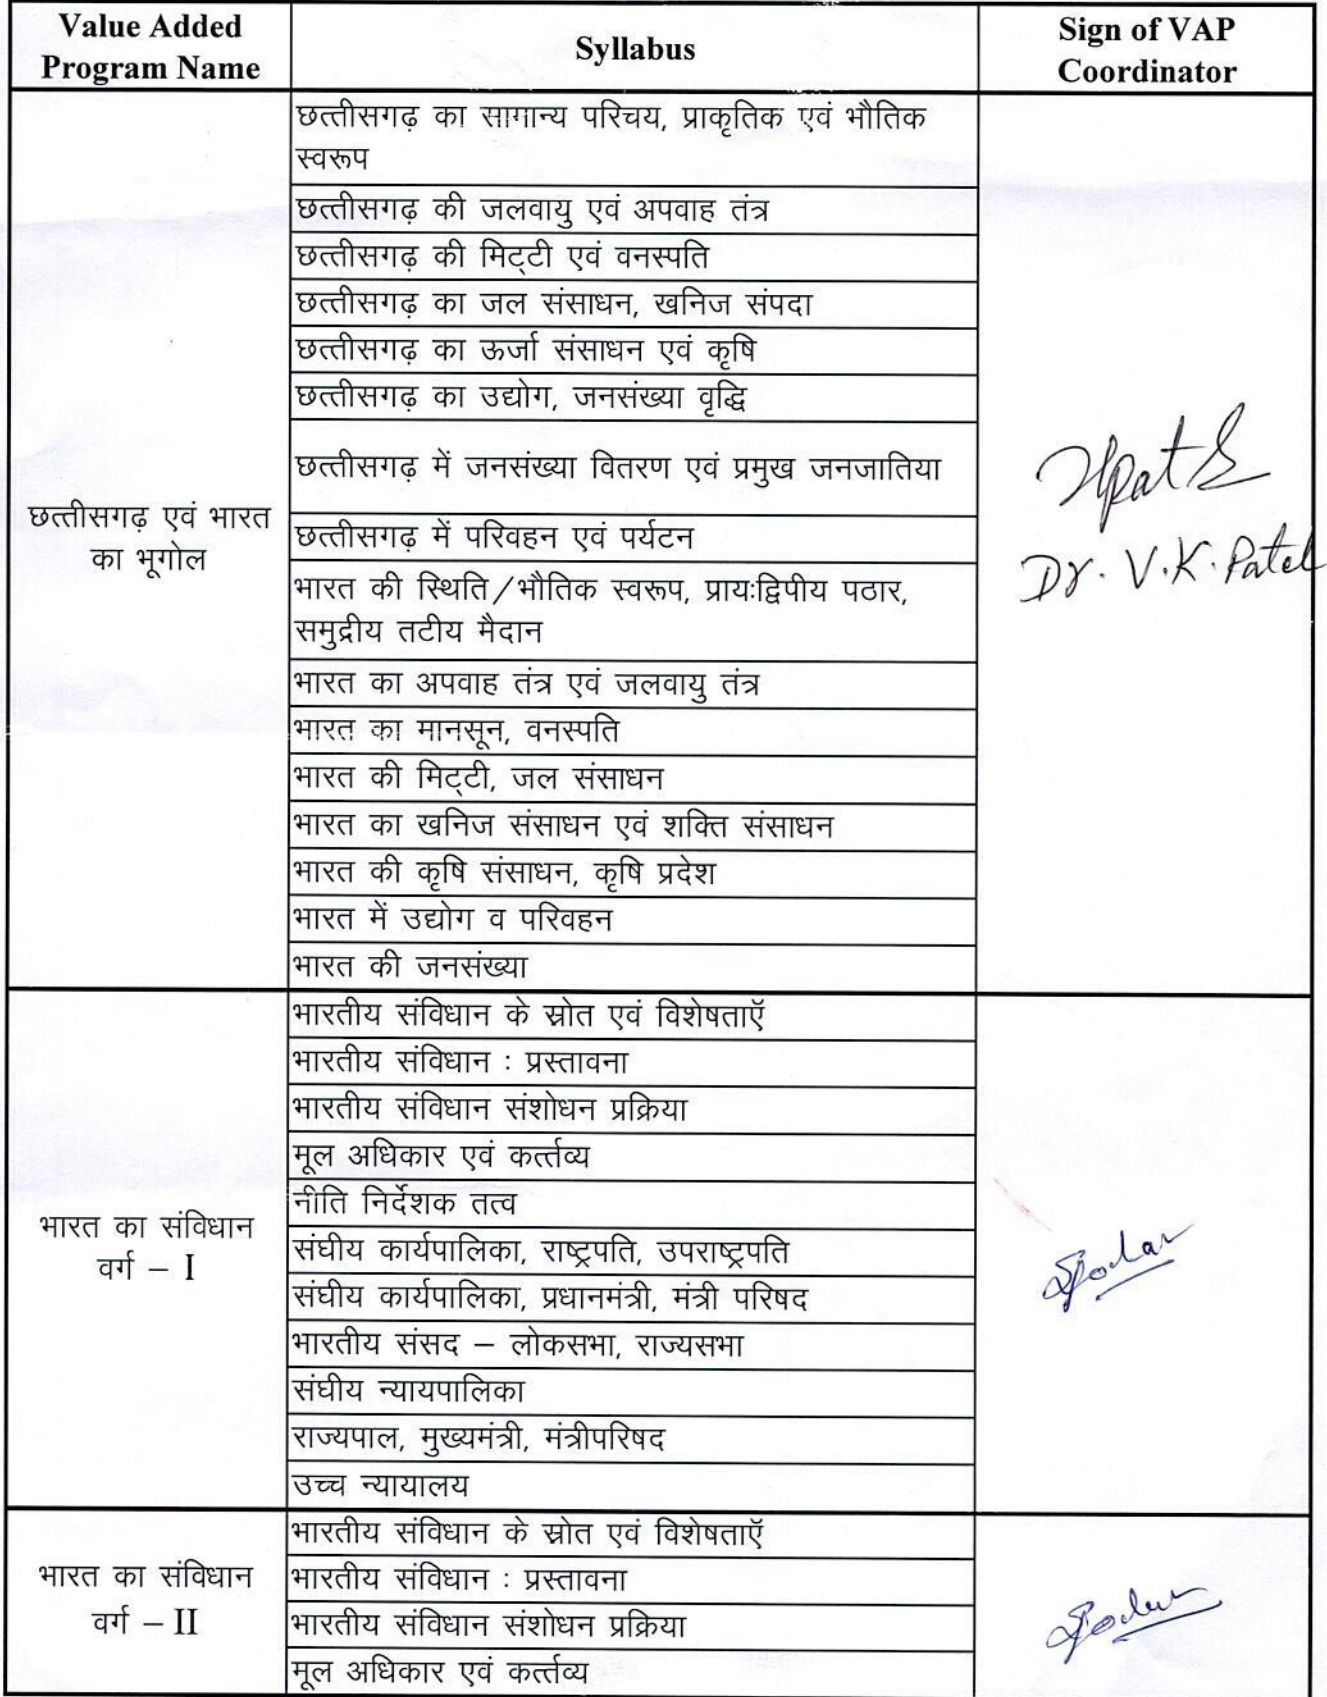 Value Added
Program Name
Syllabus
Sign of VAP
Coordinator
छत्तीसगढ़ एवं भारत
का भूगोल
छत्तीसगढ़ का सामान्य परिचय, प्राकृतिक एवं भौतिक
स्वरूप
छत्तीसगढ़ की जलवायु एवं अपवाह तंत्र
छत्तीसगढ़ की मिट्टी एवं वनस्पति
छत्तीसगढ़ का जल संसाधन, खनिज संपदा
छत्तीसगढ़ का ऊर्जा संसाधन एवं कृषि
छत्तीसगढ़ का उद्योग, जनसंख्या वृद्धि
छत्तीसगढ़ में जनसंख्या वितरण एवं प्रमुख जनजातिया
छत्तीसगढ़ में परिवहन एवं पर्यटन
भारत की स्थिति/भौतिक स्वरूप, प्रायःद्विपीय पठार,
समुद्रीय तटीय मैदान
भारत का अपवाह तंत्र एवं जलवायु तंत्र
भारत का मानसून, वनस्पति
भारत की मिट्टी, जल संसाधन
भारत का खनिज संसाधन एवं शक्ति संसाधन
भारत की कृषि संसाधन, कृषि प्रदेश
भारत में उद्योग व परिवहन
भारत की जनसंख्या
Dr. V.K. Patel
भारत का संविधान
वर्ग – I
भारतीय संविधान के स्रोत एवं विशेषताऍ
भारतीय संविधान : प्रस्तावना
भारतीय संविधान संशोधन प्रक्रिया
मूल अधिकार एवं कर्त्तव्य
नीति निर्देशक तत्व
संघीय कार्यपालिका, राष्ट्रपति, उपराष्ट्रपति
संघीय कार्यपालिका, प्रधानमंत्री, मंत्री परिषद
भारतीय संसद – लोकसभा, राज्यसभा
संघीय न्यायपालिका
राज्यपाल, मुख्यमंत्री, मंत्रीपरिषद
उच्च न्यायालय
भारत का संविधान
वर्ग – II
भारतीय संविधान के स्रोत एवं विशेषताऍ
भारतीय संविधान : प्रस्तावना
भारतीय संविधान संशोधन प्रक्रिया
मूल अधिकार एवं कर्त्तव्य